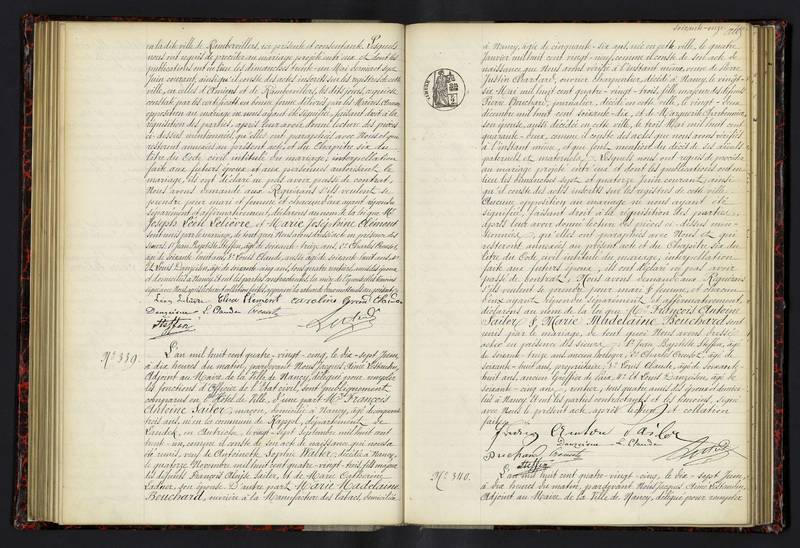 en ladite ville de Rambervillers, ici présente et consentante. Lesquels
nous ont requis de procéder au mariage projeté entre eux et dont les
publications ont eu lieu les dimanches trente-un Mai dernier et sept
Juin courant, ainsi qu'il conste des actes insérés sur les registres de cette
ville, en celles d' et de Rambervillers, les dits jours, aucune
opposition au mariage ne nous ayant été signifiée, faisant droit à la
réquisition des parties, après leur avoir donné lecture des pièces
ci-dessus mentionnées, qu'elles ont paraphées avec Nous et qui
resteront annexées au présent acte, et du Chapitre six du
titre du Code civil intitulé du mariage, interpellation
faite aux futurs époux et aux personnes autorisant le
mariage, ils ont déclaré ne pas avoir passé de contrat.
Nous avons demandé aux Requérans s'ils veulent se
prendre pour mari et femme et chacun d'eux ayant répondu
séparément et affirmativement, déclarons au nom de la loi que Mr
Joseph Léon Lelièvre et Marie Joséphine Clément
sont unis par le mariage, de tout quoi Nous avons dressé acte en présence des
sieurs 1° Jean Baptiste Steffin, âgé de soixante-treize ans, 2° Charles
âgé de soixante huit ans, 3° Louis Claude, aussi âgé de soixante huit ans, 4°
Et Louis Danzision, âgé de soixante cinq ans, tous quatre
Léon Lelièvre Elise Clément Caroline Grand Claude
Danzision L. Claude
Steffin
N° 339.
L'an mil huit cent quatre-vingt-cinq, le dix-sept Juin,
à dix heures du matin, pardevant Nous Jacques Aimé
Adjoint au Maire de la Ville de Nancy, délégué pour remplir
les fonctions d'Officier de l'Etat civil, sont publiquement
comparus en l'Hôtel de Ville, d'une part Mr François
Antoine Sailer, maçon, domicilié à Nancy, âgé de cinquante
trois ans, né en la commune de Kappel, département de
Landeck, en Autriche, le vingt-sept Septembre mil huit cent
trente-un, comme il conste de son acte de naissance qui nous a
été remis, veuf de Antoinette Sophie Walter, décédée à Nancy,
le quatorze Novembre mil huit cent quatre-vingt-trois, fils majeur
des défunts François Aloïse Sailer, et de Marie Catherine
Ladner, son épouse. D'autre part Marie Madelaine
Bouchard, ouvrière à la Manufacture des tabacs, domiciliée
soixante-onze
à Nancy, âgée de cinquante-six ans, née en cette ville, le quatre
Janvier mil huit cent vingt-neuf, comme il conste de son acte de
naissance que Nous avons vérifié à l'instant même, veuve de Pierre
Justin Chardard, ouvrier charpentier, décédé à Nancy, le vingt-
six Mai mil huit cent quatre-vingt-trois, fille majeure des défunts
Pierre Bouchard, journalier, décédé en cette ville, le vingt-deux
décembre mil huit cent soixante-dix, et de Marguerite
son épouse, aussi décédée en cette ville, le trois Mai mil huit cent
quarante-deux, comme il conste des actes que nous avons vérifiés
à l'instant même, et qui font mention du décès de ses aïeuls
paternels et maternels. Lesquels nous ont requis de procéder
au mariage projeté entre eux et dont les publications ont eu
lieu les Dimanches sept et quatorze Juin courant, ainsi
qu'il conste des actes insérés sur les registres de cette ville.
Aucune opposition au mariage ne nous ayant été
signifiée, faisant droit à la réquisition des parties,
après leur avoir donné lecture des pièces ci-dessus men-
tionnées, qu'elles ont paraphées avec Nous et qui
resteront annexées au présent acte et du Chapitre six du
titre du Code civil intitulé du mariage, interpellation
faite aux futurs époux, ils ont déclaré ne pas avoir
passé de contrat. Nous avons demandé aux Requérans
s'ils veulent se prendre pour mari et femme, et chacun
d'eux ayant répondu séparément et affirmativement,
déclarons au nom de la loi que Mr François Antoine
Sailer & Marie Madelaine Bouchard sont
unis par le mariage, de tout quoi Nous avons dressé
acte en présence des sieurs 1° Jean Baptiste Steffin, âgé
de soixante-treize ans, ancien horloger, 2° Charles âgé de
soixante-huit ans, propriétaire, 3° Louis Claude, âgé de soixante-
huit ans, ancien Greffier de Paix, 4° Et Louis Danzision, âgé de
soixante-cinq ans, rentier, tous quatre amis des époux et domici-
liés à Nancy. Et ont les parties contractantes et les témoins, signé
avec Nous le présent acte, après lecture et collation
faites.
Sailer
Danzision L. Claude
Bouchard
Steffin
N° 340.
L'an mil huit cent quatre-vingt-cinq, le dix-sept Juin,
à dix heures du matin, pardevant Nous Jacques Aimé
Adjoint au Maire de la Ville de Nancy, délégué pour remplir